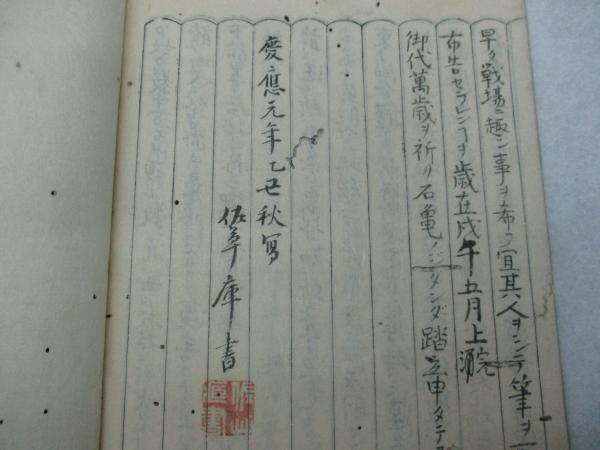 早ク戦場ニ趣ン事ヲ希フ宜其人ヲシテ筆ヲ
布告セラレンヿヲ歳在戊午五月上浣
御代萬歳ヲ祈リ石亀ノジダンダ踏立申タテ
慶應元年乙丑秋写
庫書